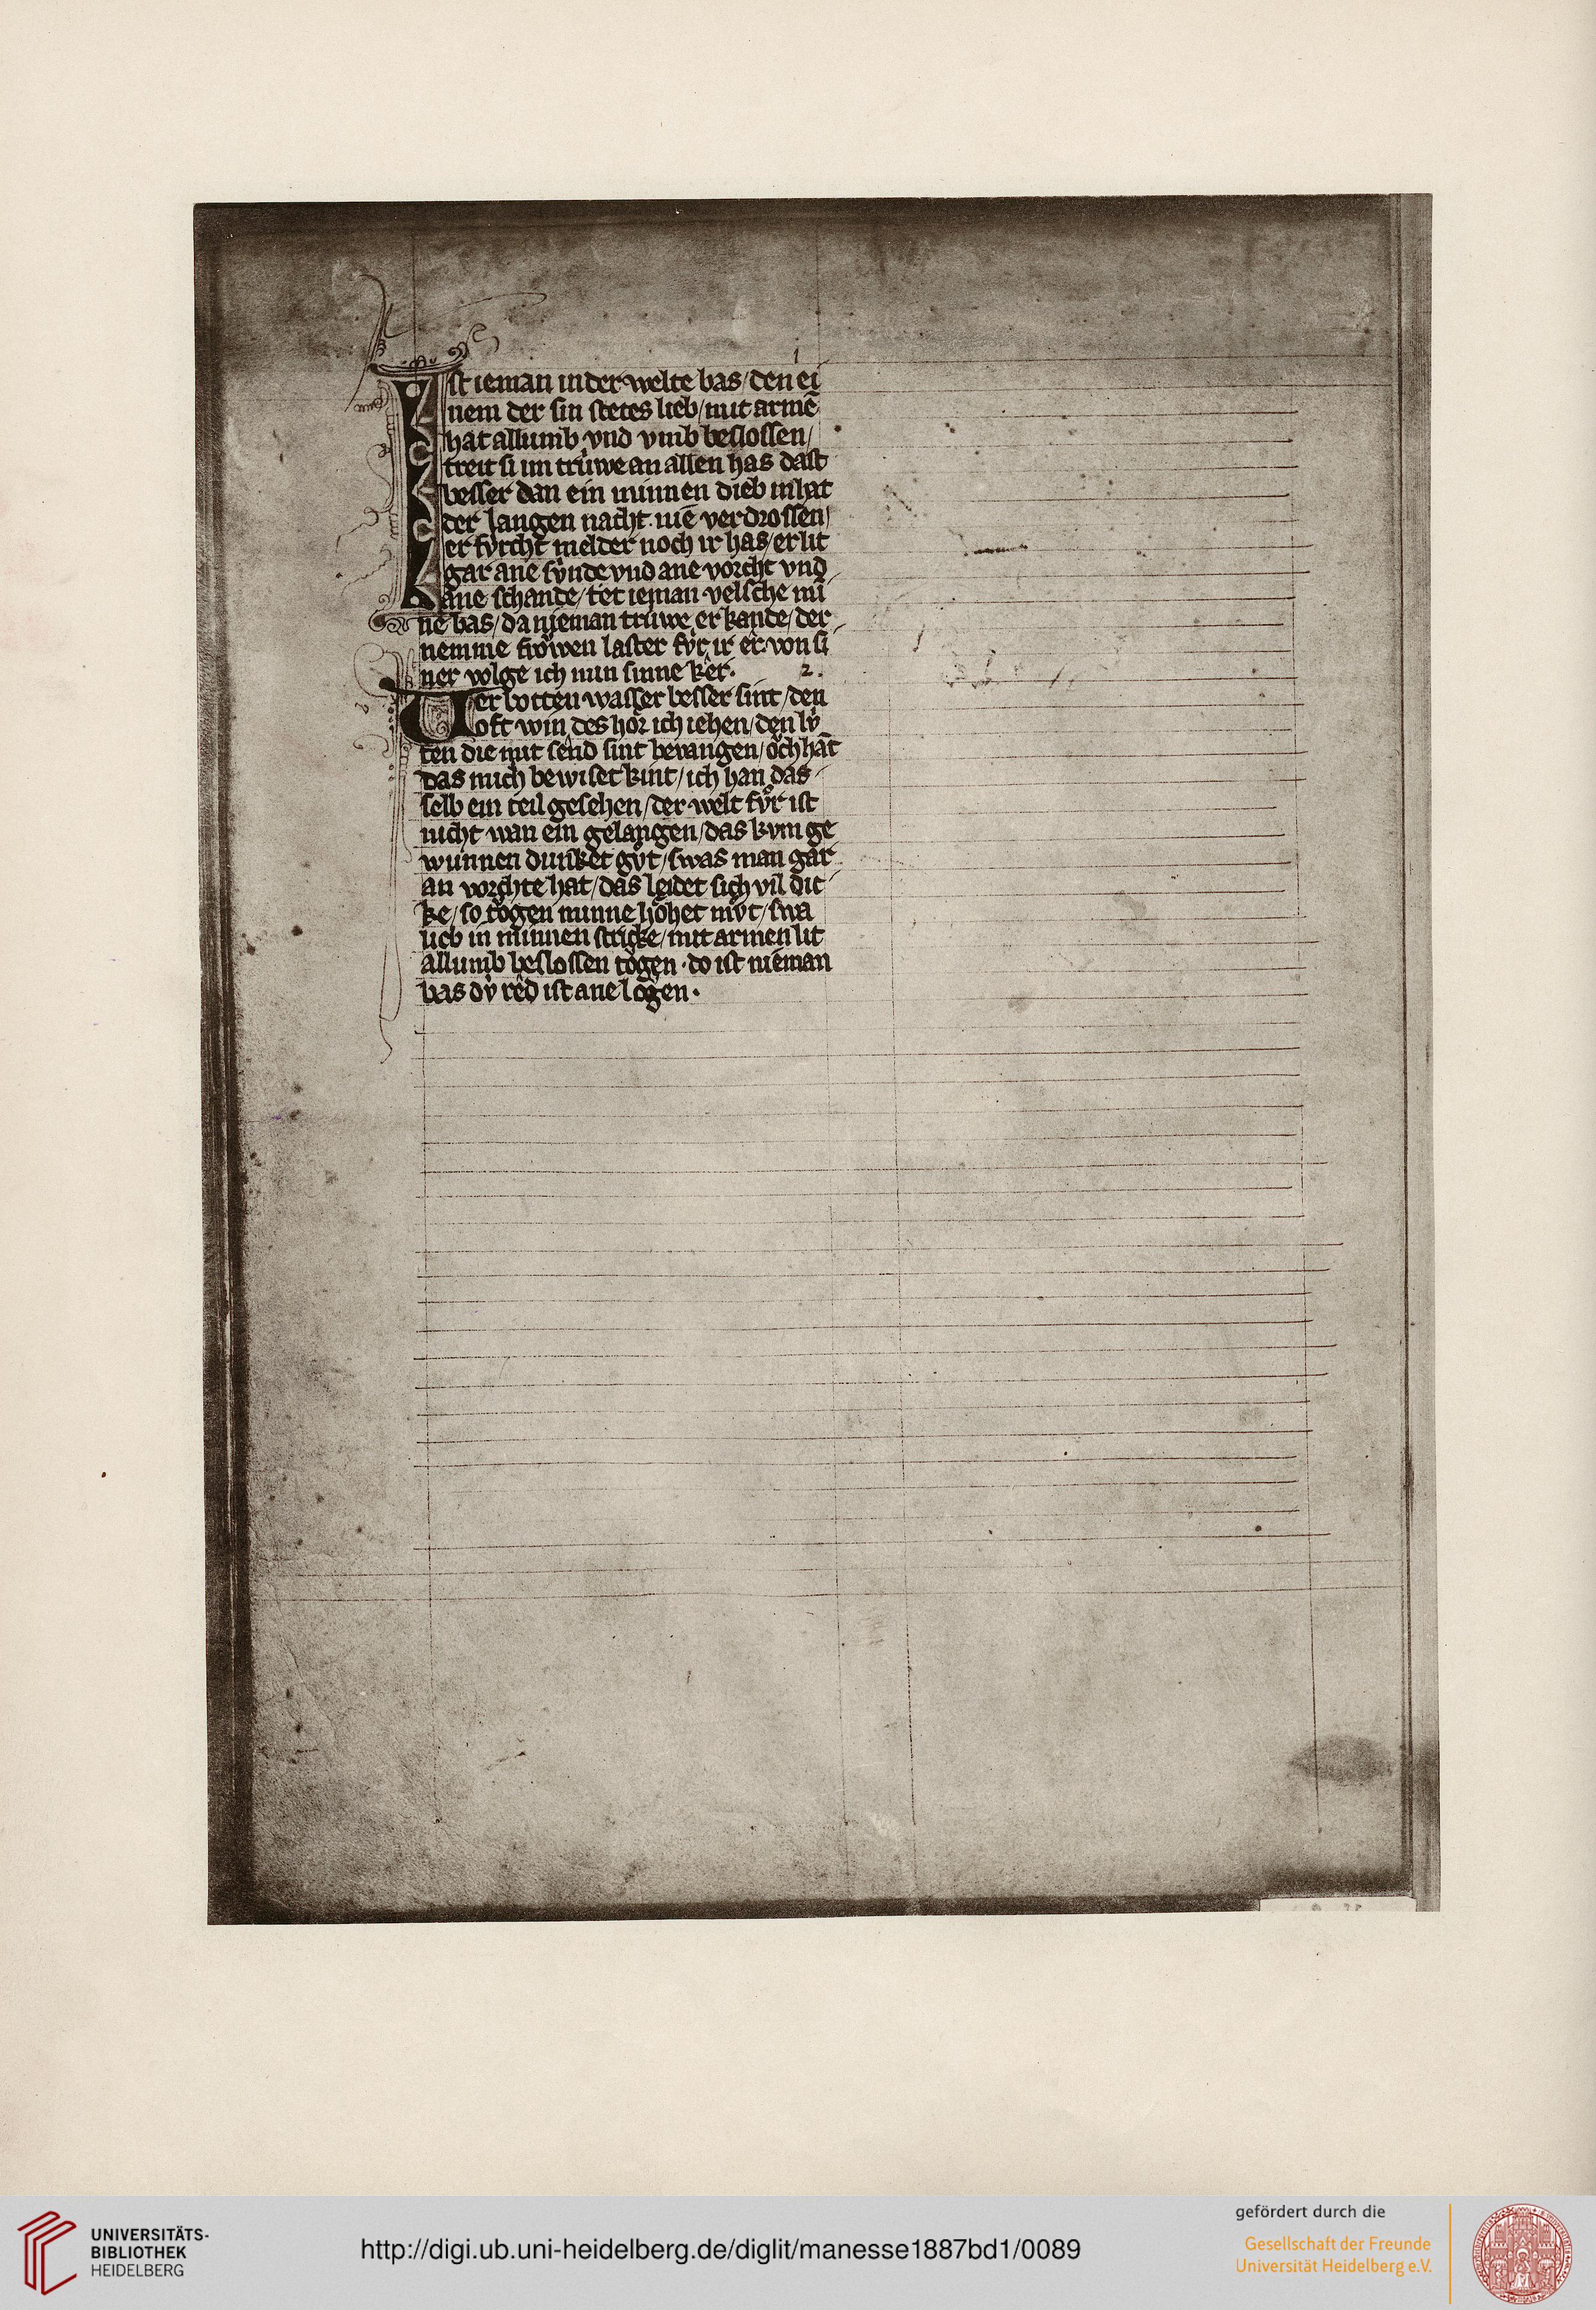 1
Ist ieman in der welte bas / den ei
nem der sin stetes lieb / mit armē
hat allumb vnd vmb beslossen /
treit si im trúwe an allen has dast
besser dan ein minnen dieb in hat
der langen nacht . nie verdrossen /
er fv́rcht melder noch ir has / er lit
gar ane sv́nde vnd ane vorcht vnd
ane schande / tet ieman velsche mī
ne bas / da nieman trúwe erkande / der
nemme frowen laster fv́r ir er von si
ner volge ich min sinne ker .
2.
Verbotten wasser besser sint / den
oft win des hôr ich iehen / den lv́
ten die mit send sint bevangen / ôch hat
das mich bewiset kint / ich han das
selb ein teil gesehen / der welt fv́r ist
nicht wan ein gelangen / das kvm ge
wunnen dunket gv̊t / swas man gar
an vorchte hat / das leidet sich vil dic
ke / so tôgen minne hôhet mv̊t / swa
lieb in minnen stricke / mit armen lit
allumb beslossen tôgen . do ist nieman
bas dv́ red ist ane lôgen .
UNIVERSITÄTS-
BIBLIOTHEK
HEIDELBERG
http://digi.ub.uni-heidelberg.de/diglit/manesse1887bd1/0089
gefördert durch die
Gesellschaft der Freunde
Universität Heidelberg e.V.